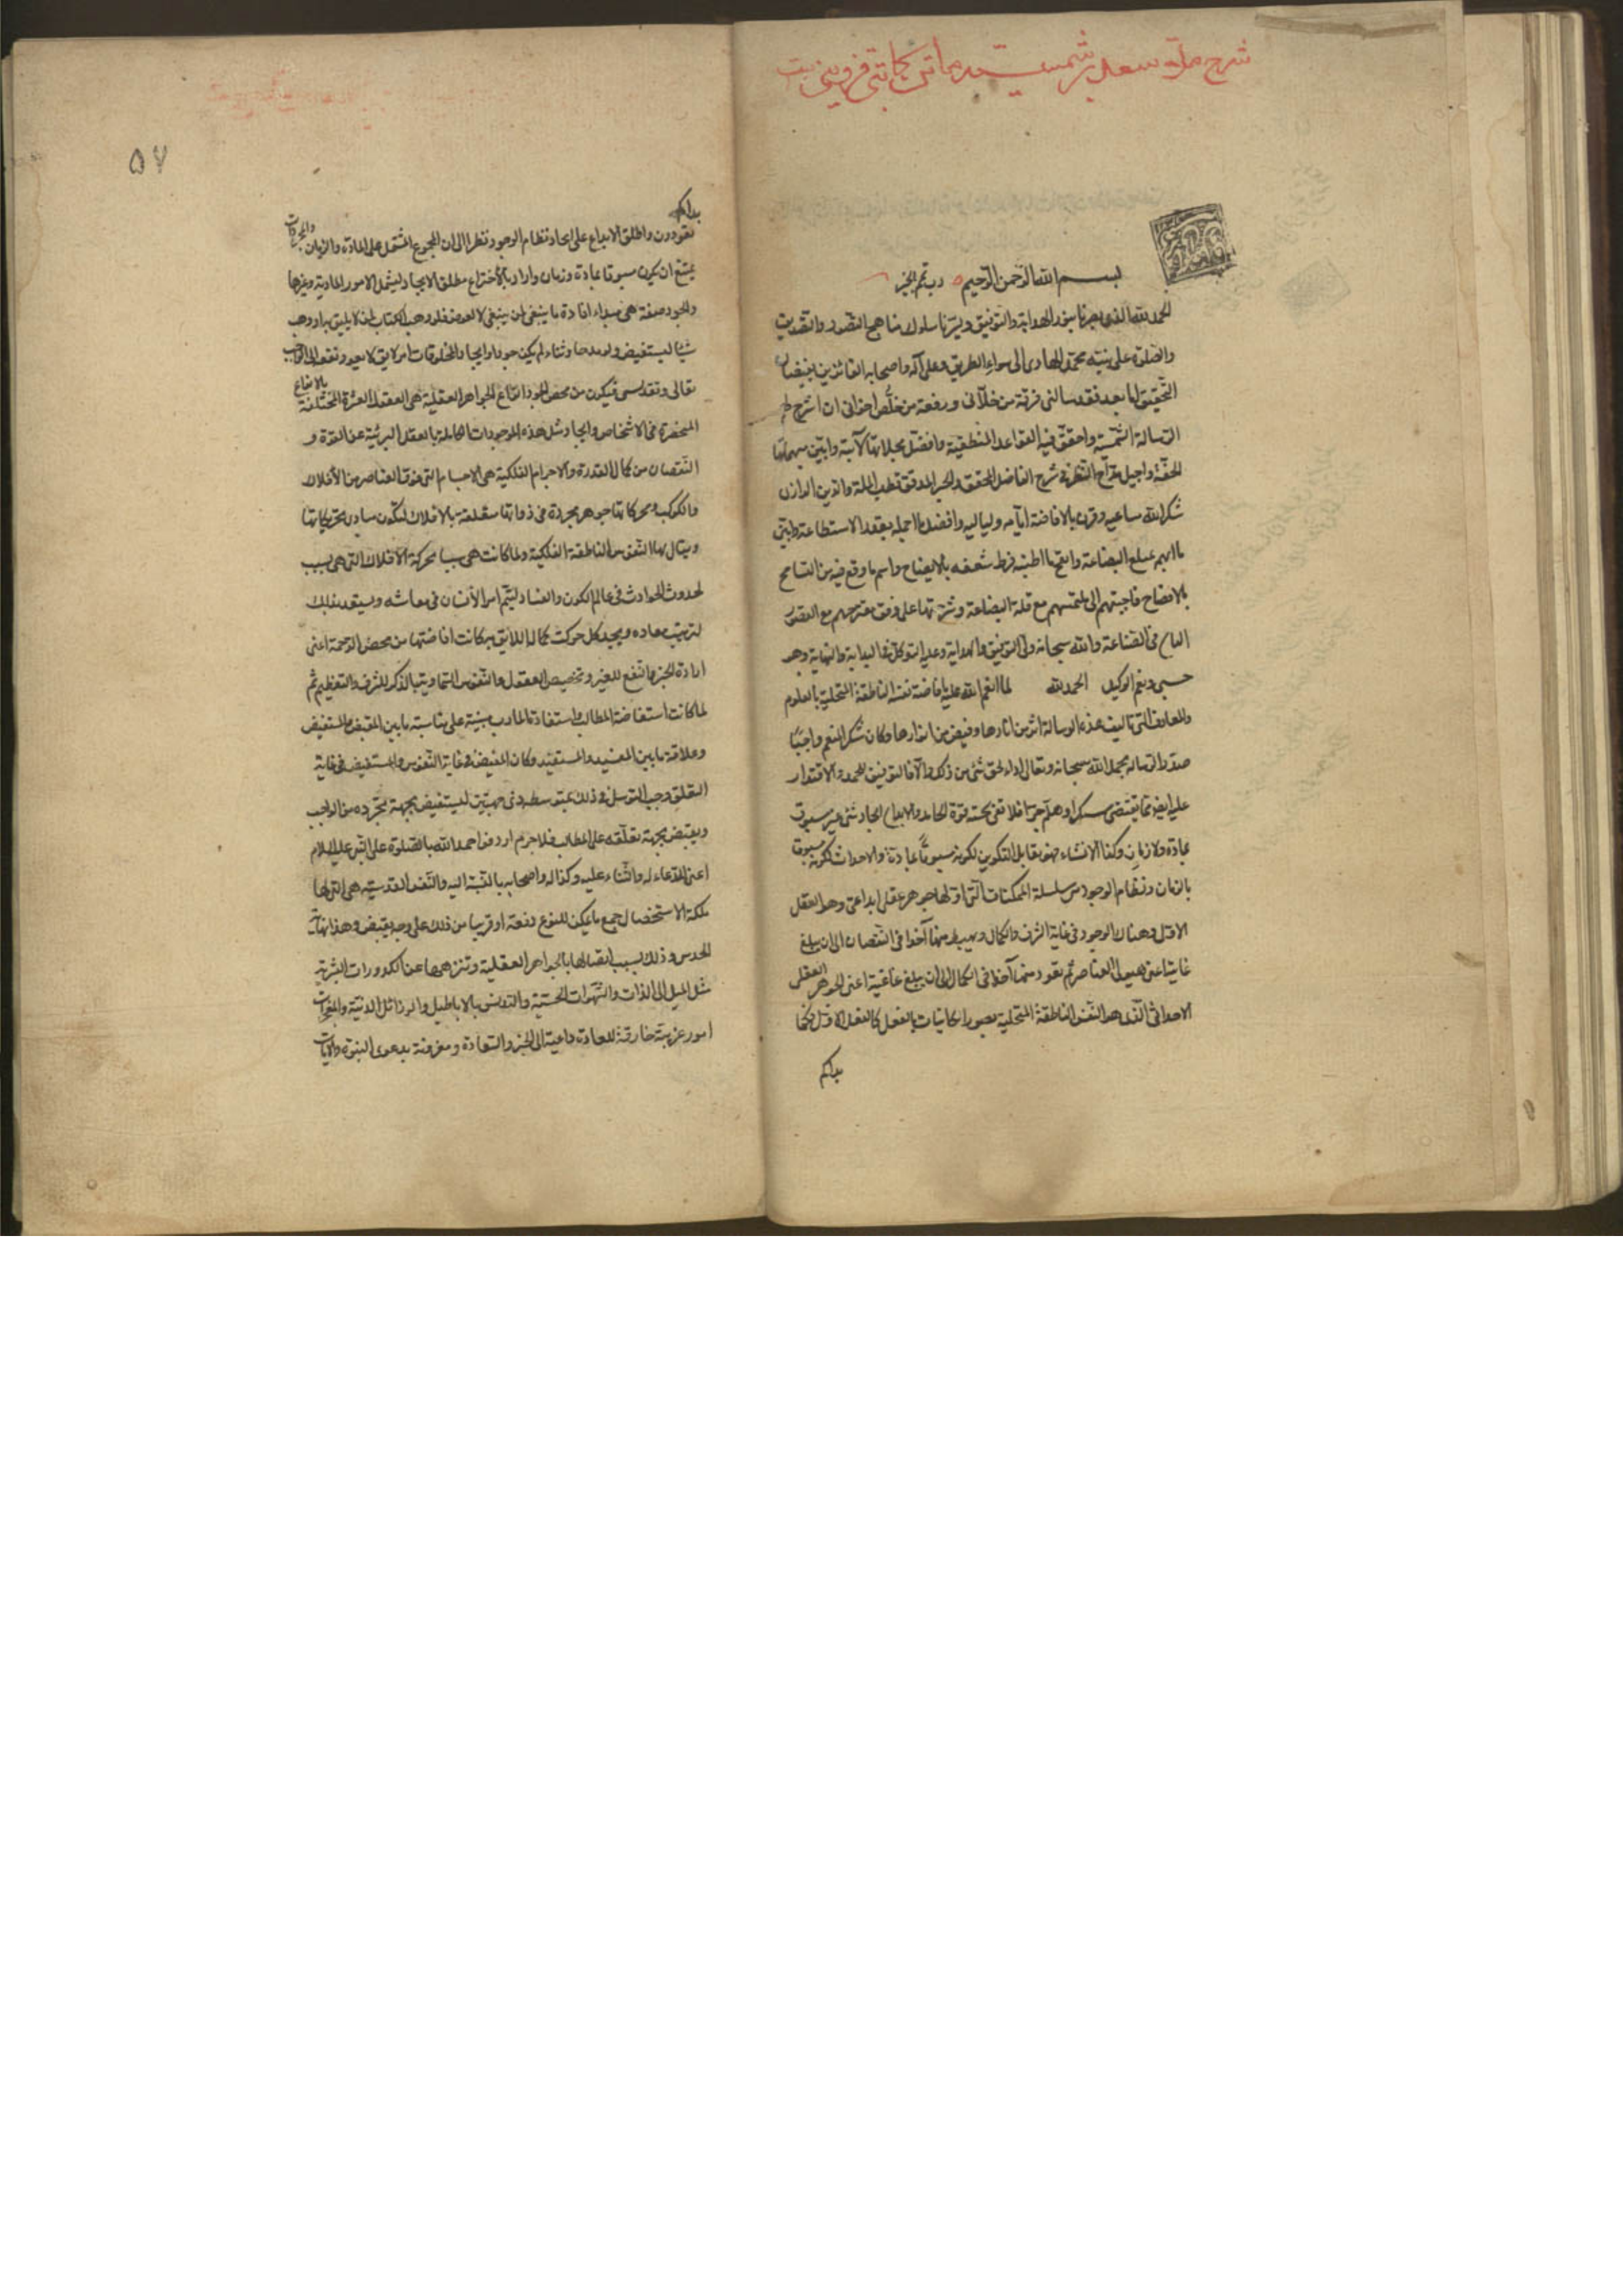 شرح ملا سعد بر شمسیه ماتن کاتبی قزوینی است
بسم الله الرحمن الرحیم رب تمم بالخیر
الحمد لله الذی بصرنا بنور الهدایة والتوفیق ویسرنا سلوک مناهج التصور والتصدیق
والصلوة علی نبیه محمد الهادی الی سواء الطریق وعلی آله واصحابه الفائزین
التحقیق اما بعد فقد سألنی فرقة من خلانی ورفعة من خلص اخوانی ان اشرح لهم
الرسالة الشمسیة واحقق فیه القواعد المنطقیة وافصل مجملاتها الآبیة وابین مبهماتها
الخفیة واجیل قداح النظر فی شرح الفاضل المحقق والحبر المدقق قطب الملة والدین الرازی
شکر الله مساعیه وقرن بالافاضة ایامه ولیالیه وافصل ما اجمله بقدر الاستطاعة وابین
ما ابهم بمبلغ البضاعة واطنبه فرط شعفه بالایضاح وقع فیه من التسامح
بالافصاح فاجبتهم الی ملتمسهم مع قلة البضاعة وشرحتها علی وفق مقترحهم مع القصور
فی الصناعة والله سبحانه ولی التوفیق والهدایة وعلیه التوکل فی البدایة والنهایة وهو
حسبی ونعم الوکیل الحمد لله لما انعم الله علیه بافاضة نفسه الناطقة المتحلیة بالعلوم
والمعارف التی تالیف هذه الرسالة اثر من آثارها وفیض من انوارها وکان شکر المنعم واجبا
صدر الرسالة بحمد الله سبحانه وتعالی اداء لحق شئ من ذلک والا فالتوفیق للحمد والاقتدار
علیه ایضا مما یقتضی شکرا وهلم جرا فلا تفی بحقه قوة الحامد والابداع ایجاد شئ غیر مسبوق
بمادة ولا زمان وکذا الانشاء فهو یقابل التکوین لکونه مسبوقا بمادة والاحداث لکونه مسبوقا
بالزمان ونظام الوجود سلسلة الممکنات التی اولها جوهر عقلی ابداعی وهو العقل
الاول وهناک الوجود فی غایة الشرف والکمال ویهبط منها آخذا فی النقصان الی ان یبلغ
غایته اعنی هیولی العناصر ثم یعود منها آخذا فی الکمال الی ان یبلغ غایته اعنی الجوهر العقلی
الذی هو النفس الناطقة المتحلیة بصور الکاینات بالفعل کالعقل الاول
بداکم
۵۷
بداکم
تعودون واطلق الابداع علی ایجاد نظام الوجود نظرا الی ان المجموع المشتمل علی المادة والزمان
یمتنع ان یکون مسبوقا بمادة وزمان واراد بالاختراع مطلق الایجاد لیشمل الامور المادیة وغیرها
والجود صفة هی مبداء افادة ما ینبغی لمن ینبغی لا لعوض فلو وهب الکتاب لمن لا یلیق به او وهب
شیئا لیستعیض ولو مدحا وثناء لم یکن جودا وایجاد المخلوقات امر لایق لا یعود نفعه الی الواجب
تعالی وتقدس فیکون من محض الجود انواع الجواهر العقلیة هی العقول العشرة المختلفة بالانواع
المنحصرة فی الاشخاص وایجاد مثل هذه الموجودات الکاملة بالعقل البریئة عن القوة و
النقصان من کمال القدرة والاجرام الفلکیة هی الاجسام التی فوق العناصر من الافلاک
والکواکب ومحرکاتها جواهر مجردة فی ذواتها متعلقة بالافلاک لتکون مبادی تحریکاتها
ویقال لها النفوس الناطقة الفلکیة ولما کانت هی سببا لحرکة الافلاک التی هی سبب
لحدوث الحوادث فی عالم الکون والفساد لیتم امر الانسان فی معاشه ویستعد بذلک
لترتیب معاده ویجد کل حرکت کماله اللائق به کانت افاضتها من محض الرحمة اعنی
ارادة الخیر والنفع للغیر وتخصیص العقول والنفوس السماویة بالذکر للشرف والتعظیم ثم
لما کانت استفاضة المطالب واستفادة المآرب مبنیة علی مناسبة ما بین المفیض والمستفیض
وعلاقة ما بین المفید والمستفید وکان المفیض فی غایة التقدس والمستفیض فی غایة
التعلق وجب التوسل فی ذلک بمتوسط ذی جهتین لیستفیض بجهة تجرده من الواجب
ویفیض بجهة تعلقه علی المطالب فلا جرم اردف احمد الله بالصلوة علی النبی علیه السلام
اعنی الدعاء له والثناء علیه وکذا آله واصحابه بالنسبة الیه والنفس القدسیة هی التی لها
ملکة الاستحضار جمیع ما یمکن للنوع دفعة او قریبا من ذلک علی وجه یقینی وهذا نهایة
الحدس وذلک بسبب اتصالها بالجواهر العقلیة وتنزهها عن الکدورات البشریة
مثل المیل الی اللذات والشهوات الحسیة والتدنس بالاباطیل والرذائل الدنیة والمعجزات
امور غریبة خارقة للعادة داعیة الی الخیر والسعادة ومقرونة بدعوی النبوة والایات